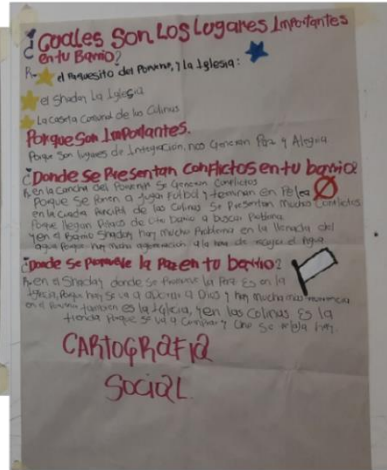 ¿Cuales Son Los Lugares Importantes
en tu Barrio?
R= el Parquesito del Porvenir, y la Iglesia:
el Shaday La Iglesia
La caseta Comunal de las Colinas
Porque Son Importantes.
Porque Son lugares de Integración, nos Generan Paz y Alegria
¿Donde Se Presentan Conflictos en tu barrio?
R= en la Cancha del Porvenir Se Generan Conflictos
Porque Se Ponen a Jugar Futbol y terminan en Pelea
en la Cuadra Principal de las Colinas Se Presentan Mucho Conflictos
Porque llegan de Otro Barrio a buscar Problema
y en el Barrio Shaday hay mucho Problema en la llenada del
agua Porque hay mucha a la hora de recoger el Agua
¿Donde Se Promueve la Paz en tu barrio?
R= en el Shaday donde Se Promueve la Paz es en la
Iglesia, Porque hay Se va a a Dios y hay mucha
en el Porvenir tambien es la Iglesia, y en las Colinas es la
tienda Porque Se va a Comprar y Uno Se hay.
CARTOGRAFIA
SOCIAL